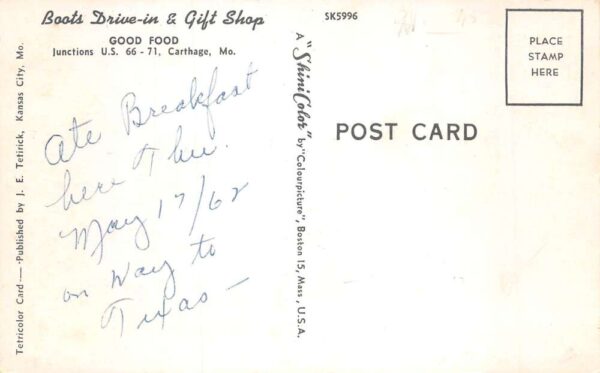 Boots Drive-in & Gift Shop
GOOD FOOD
Junctions U.S. 66 - 71, Carthage, Mo.
Ate Breakfast
here Thu.
May 17/62
on way to
Texas —
Tetricolor Card — Published by J. E. Tetirick, Kansas City, Mo.
SK5996
A "ShiniColor" by "Colourpicture", Boston 15, Mass., U.S.A.
POST CARD
PLACE
STAMP
HERE